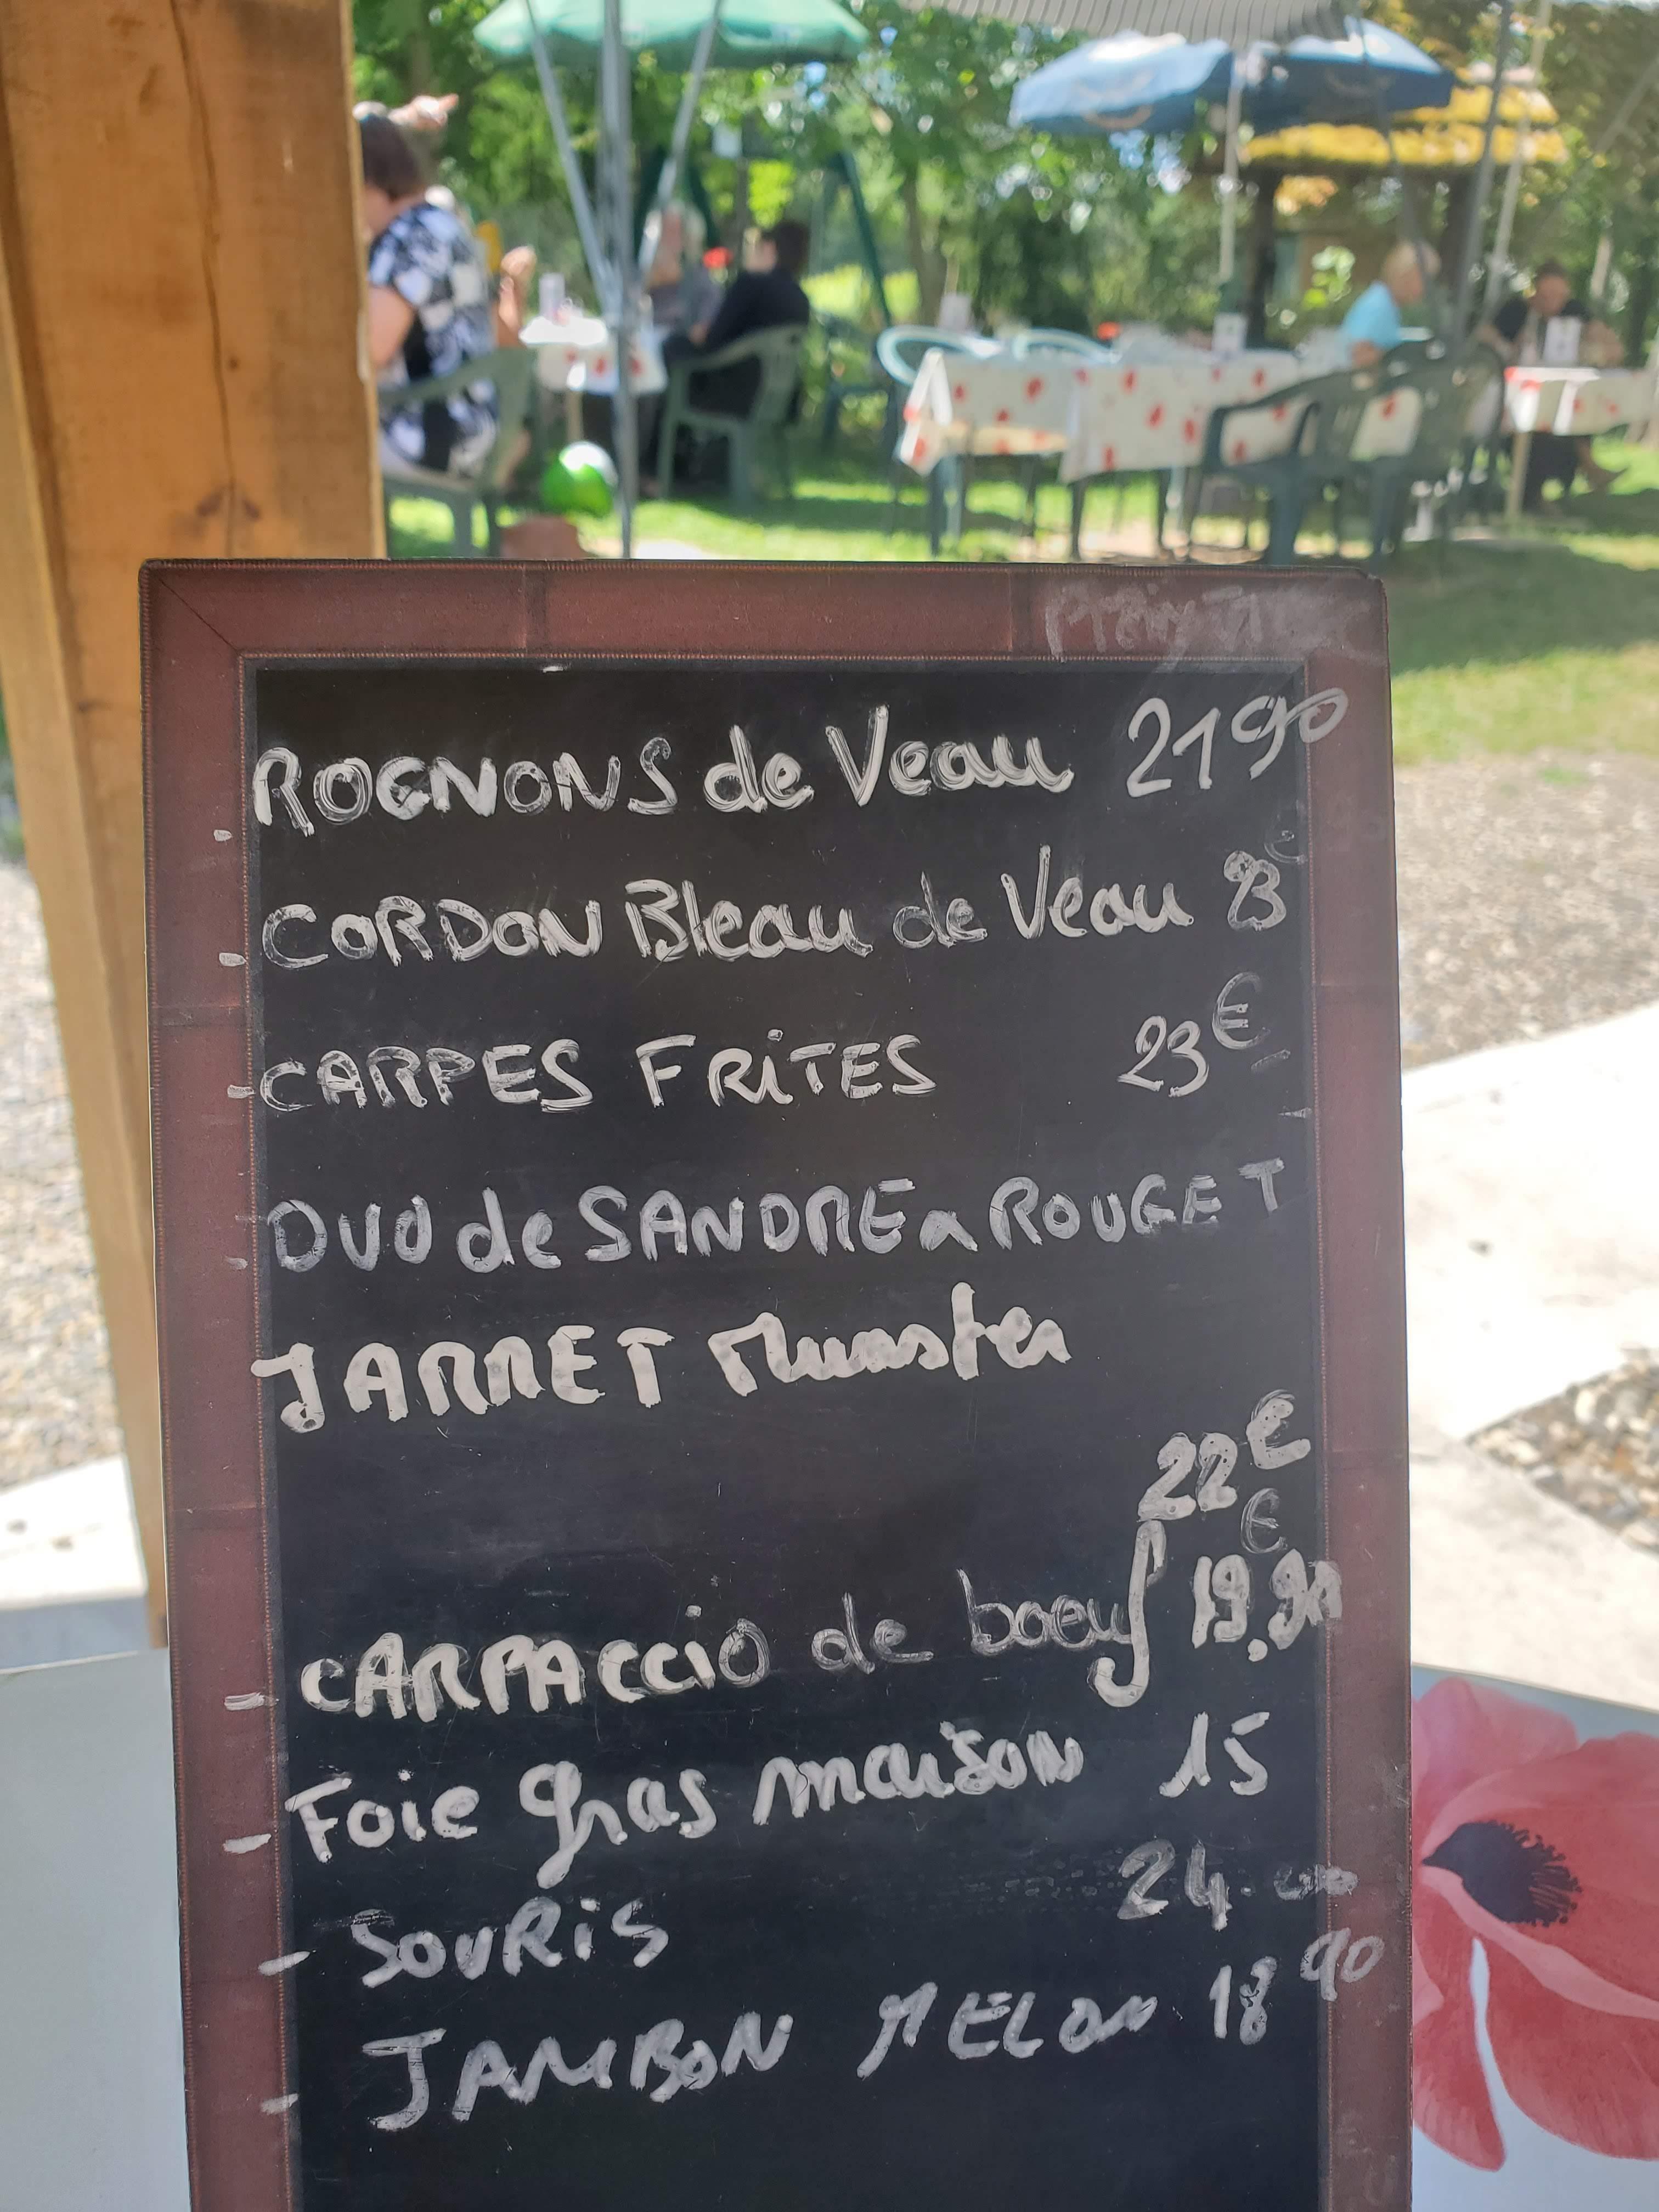 ROGNONS de Veau 21 90
CORDON Bleau de Veau 23 €
CARPES FRiTES 23 €
DUO de SANDRE a ROUGET
JARRET Munster
22 €
CARPACCiO de boeuf 19.90 €
Foie gras maison 15
SOURiS 24.00
JAMBON MELON 18 90